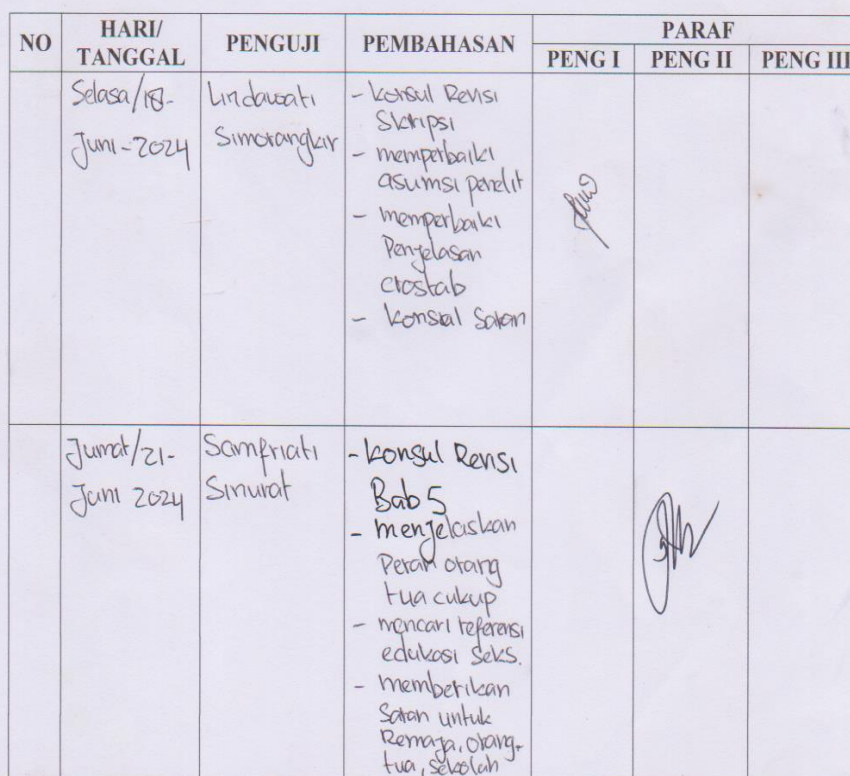 NO
HARI/
TANGGAL
PENGUJI
PEMBAHASAN
PARAF
PENG I
PENG II
PENG III
Selasa/18-
Juni-2024
Lindawati
Simorangkir
- Konsul Revisi
Skripsi
- memperbaiki
asumsi penelit
- memperbaiki
Penjelasan
crostab
- Konsul Saran
Jumat/21-
Juni 2024
Samfriati
Sinurat
- Konsul Revisi
Bab 5
- menjelaskan
Peran orang
tua cukup
- mencari referensi
edukasi seks.
- memberikan
Saran untuk
Remaja, orang-
tua, sekolah